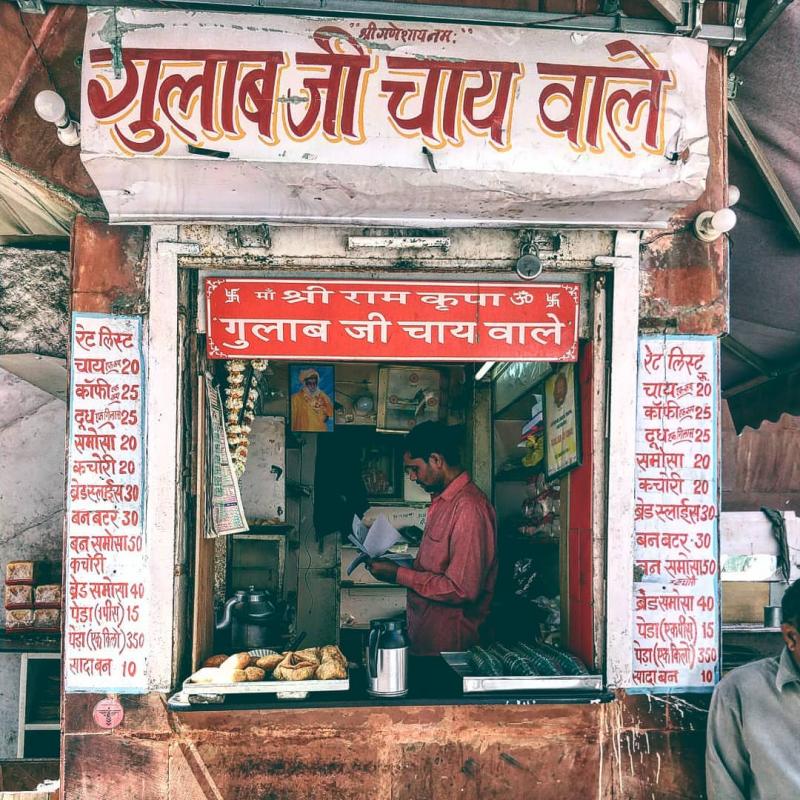 ॥ श्री गणेशाय नमः ॥
गुलाब जी चाय वाले
卐 माँ श्री राम कृपा ॐ 卐
गुलाब जी चाय वाले
रेट लिस्ट
चाय 20
कॉफी 25
दूध एक गिलास 25
समोसा 20
कचौरी 20
ब्रेड स्लाईस 30
बन बटर 30
बन समोसा 50
कचौरी
ब्रेड समोसा 40
पेड़ा (1 पीस) 15
पेड़ा (एक किलो) 350
सादा बन 10
रेट लिस्ट
रू.
चाय 20
कॉफी 25
दूध एक गिलास 25
समोसा 20
कचौरी 20
ब्रेड स्लाईस 30
बन बटर - 30
बन समोसा 50
कचौरी
ब्रेड समोसा 40
पेड़ा (एक पीस) 15
पेड़ा (एक किलो) 350
सादा बन 10